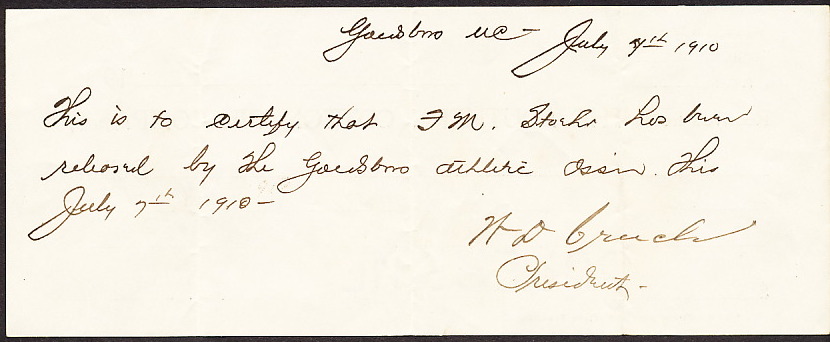 Goldsboro NC – July 7th 1910
This is to certify that F M. Stoehr has been
released by the Goldsboro athletic assn. This
July 7th 1910 –
W D Creech
President –